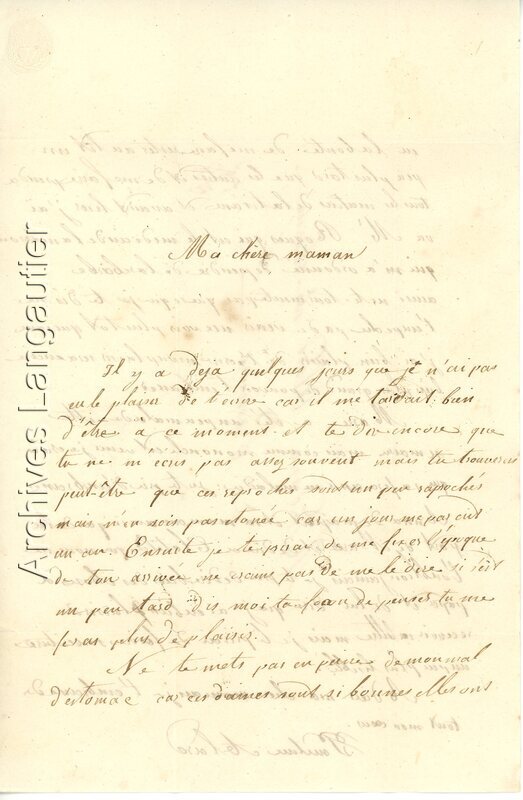 Ma chère maman
Il y a deja quelques jours que je n'ai pas
eu le plaisir de t'ecrire car il me tardait bien
d'être à ce moment et te dire encore que
tu ne m'ecris pas assez souvent mais tu trouveras
peut-être que ces reproches sont un peu raproches
mais n'en sois pas etonée car un jour me parait
un an. Ensuite je te prirai de me fixer l'epoque
de ton arrivée ne crains pas de me le dire si s'est
un peu tard dis moi ta façon de penser tu me
feras plus de plaisir.
Ne te mets pas en peine de mon mal
d'estomac car ces dames sont si bonnes elles ont
Archives Langautier